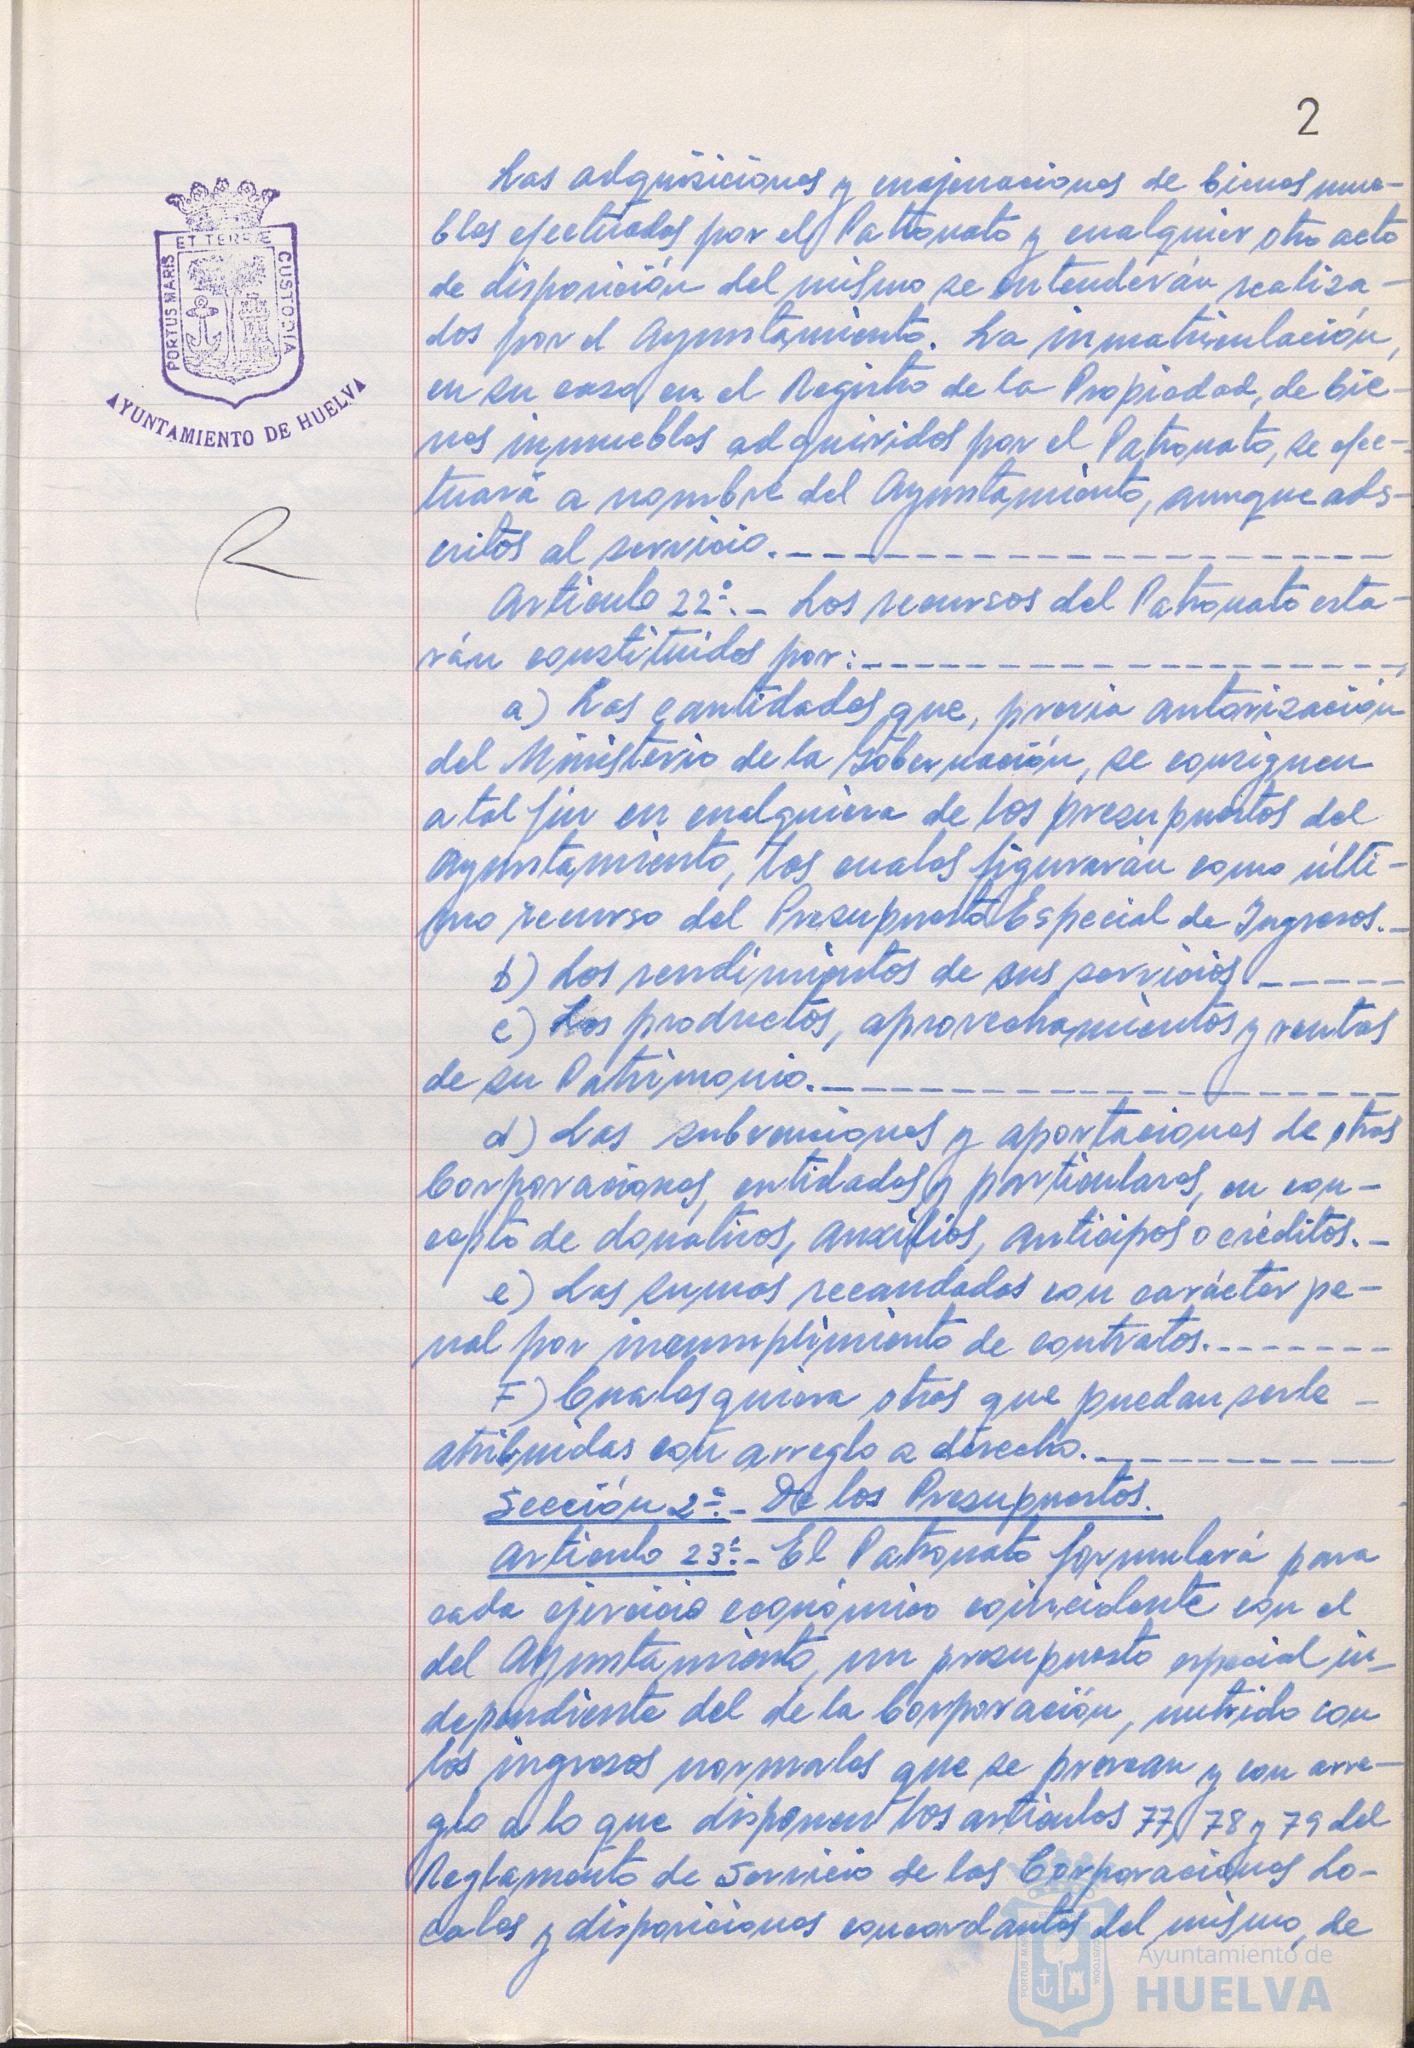 2
ET TERRE
PORTUS MARIS
CUSTODIA
AYUNTAMIENTO DE HUELVA
Las adquisiciones y enajenaciones de bienes mue-
bles efectuados por el Patronato y cualquier otro acto
de disposición del mismo se entenderán realiza-
dos por el Ayuntamiento. La inmatriculación,
en su caso, en el Registro de la Propiedad, de bie-
nes inmuebles adquiridos por el Patronato, se efec-
tuará a nombre del Ayuntamiento, aunque ads-
critos al servicio.
Artículo 22º.- Los recursos del Patronato esta-
rán constituidos por:
a) Las cantidades que, previa autorización
del Ministerio de la Gobernación, se consignen
a tal fin en cualquiera de los presupuestos del
Ayuntamiento, las cuales figurarán como últi-
mo recurso del Presupuesto Especial de Ingresos.-
b) Los rendimientos de sus servicios
c) Los productos, aprovechamientos y rentas
de su Patrimonio.
d) Las subvenciones y aportaciones de otras
Corporaciones, entidades y particulares, en con-
cepto de donativos, auxilios, anticipos o créditos.-
e) Las sumas recaudadas con carácter pe-
nal por incumplimiento de contratos.
F) Cualesquiera otros que puedan serle -
atribuidas con arreglo a derecho.
Sección 2ª.- De los Presupuestos.
Artículo 23º.- El Patronato formulará para
cada ejercicio económico coincidente con el
del Ayuntamiento, un presupuesto especial in-
dependiente del de la Corporación, nutrido con
los ingresos normales que se prevean y con arre-
glo a lo que disponen los artículos 77, 78 y 79 del
Reglamento de Servicio de las Corporaciones Lo-
cales y disposiciones concordantes del mismo, de
Ayuntamiento de
HUELVA